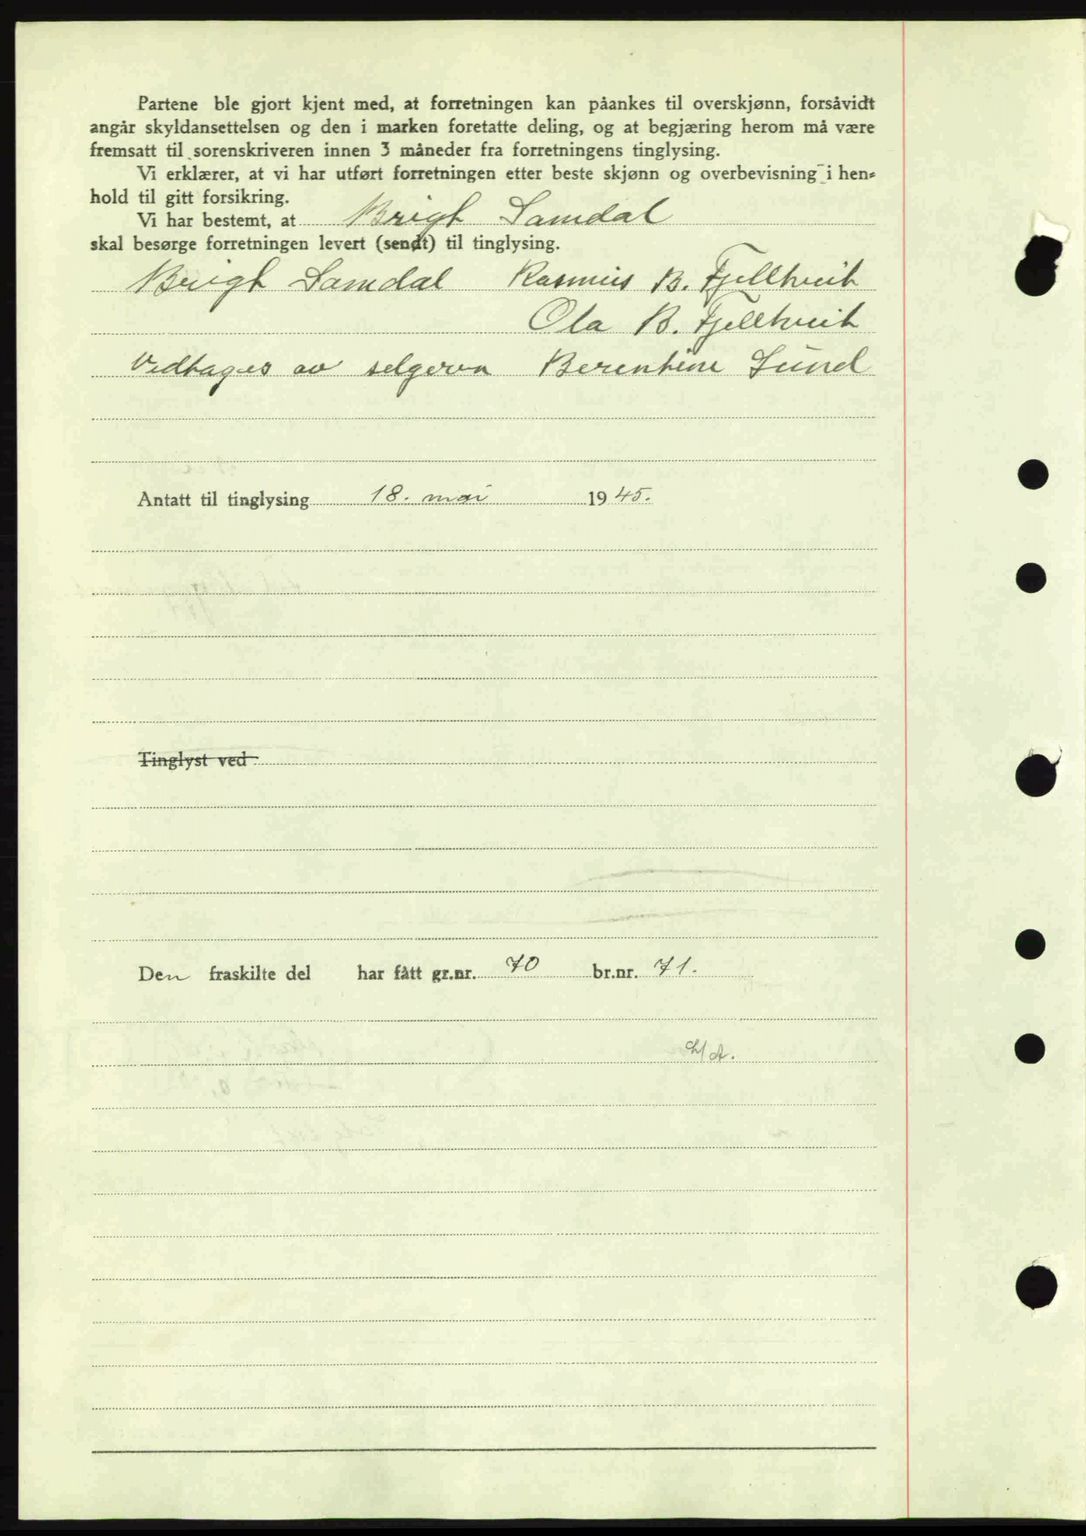 Partene ble gjort kjent med, at forretningen kan påankes til overskjønn, forsåvidt
angår skyldansettelsen og den i marken foretatte deling, og at begjæring herom må være
fremsatt til sorenskriveren innen 3 måneder fra forretningens tinglysing.
Vi erklærer, at vi har utført forretningen etter beste skjønn og overbevisning i hen-
hold til gitt forsikring.
Vi har bestemt, at Brigt Samdal
skal besørge forretningen levert (sendt) til tinglysing.
Brigt Samdal Rasmus B. Fjelltveit
Ola B. Fjelltveit
Vedtages av selgeren Berentine Lund
Antatt til tinglysing 18. mai 1945.
Tinglyst ved
Den fraskilte del har fått gr.nr. 70 br.nr. 71.